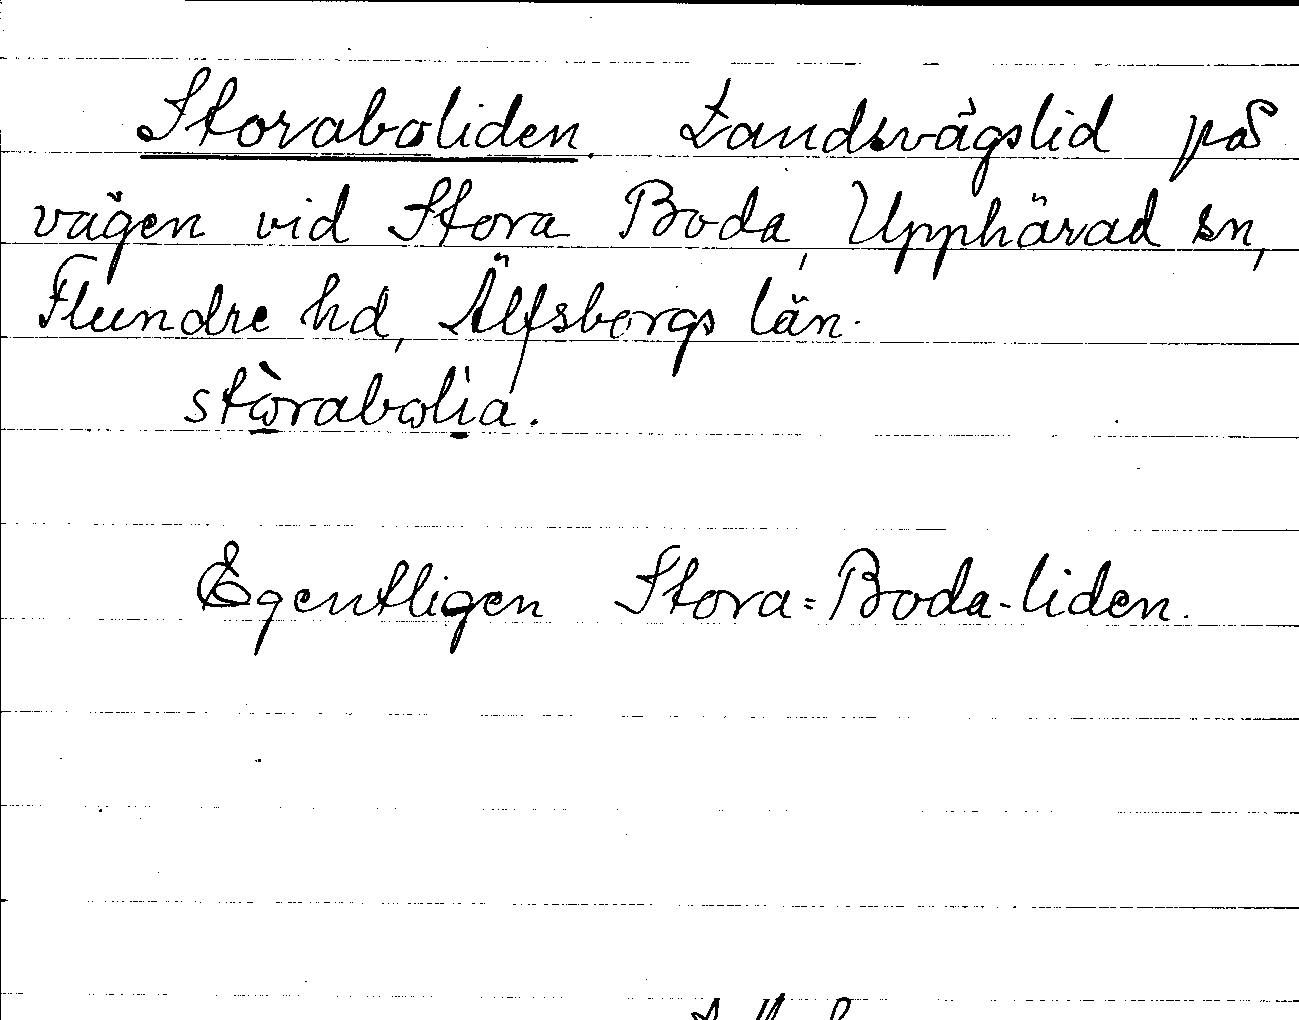 Storaboliden. Landsvägslid på
vägen vid Stora Boda, Upphärad sn,
Flundre hd, Älfsborgs län.
stòrabolìa.
Egentligen Stora-Boda-liden.